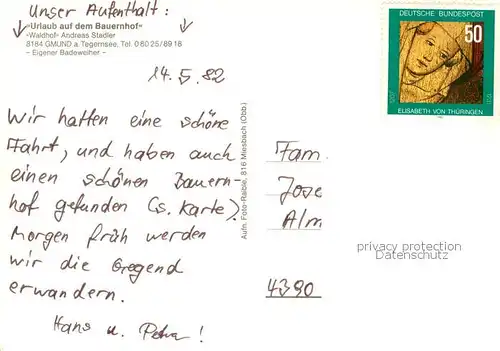 Unser Aufenthalt:
"Urlaub auf dem Bauernhof"
"Waldhof" Andreas Stadler
8184 GMUND a. Tegernsee, Tel. 0 80 25/89 18
– Eigener Badeweiher –
14.5.82
Wir hatten eine schöne
Fahrt, und haben auch
einen schönen Bauern-
hof gefunden (s. Karte).
Morgen früh werden
wir die Gegend
erwandern.
Hans u. Petra!
Aufn. Foto-Raible, 816 Miesbach (Obb.)
DEUTSCHE BUNDESPOST
50
ELISABETH VON THÜRINGEN
Fam.
Jose
Alm
privacy protection
Datenschutz
4390